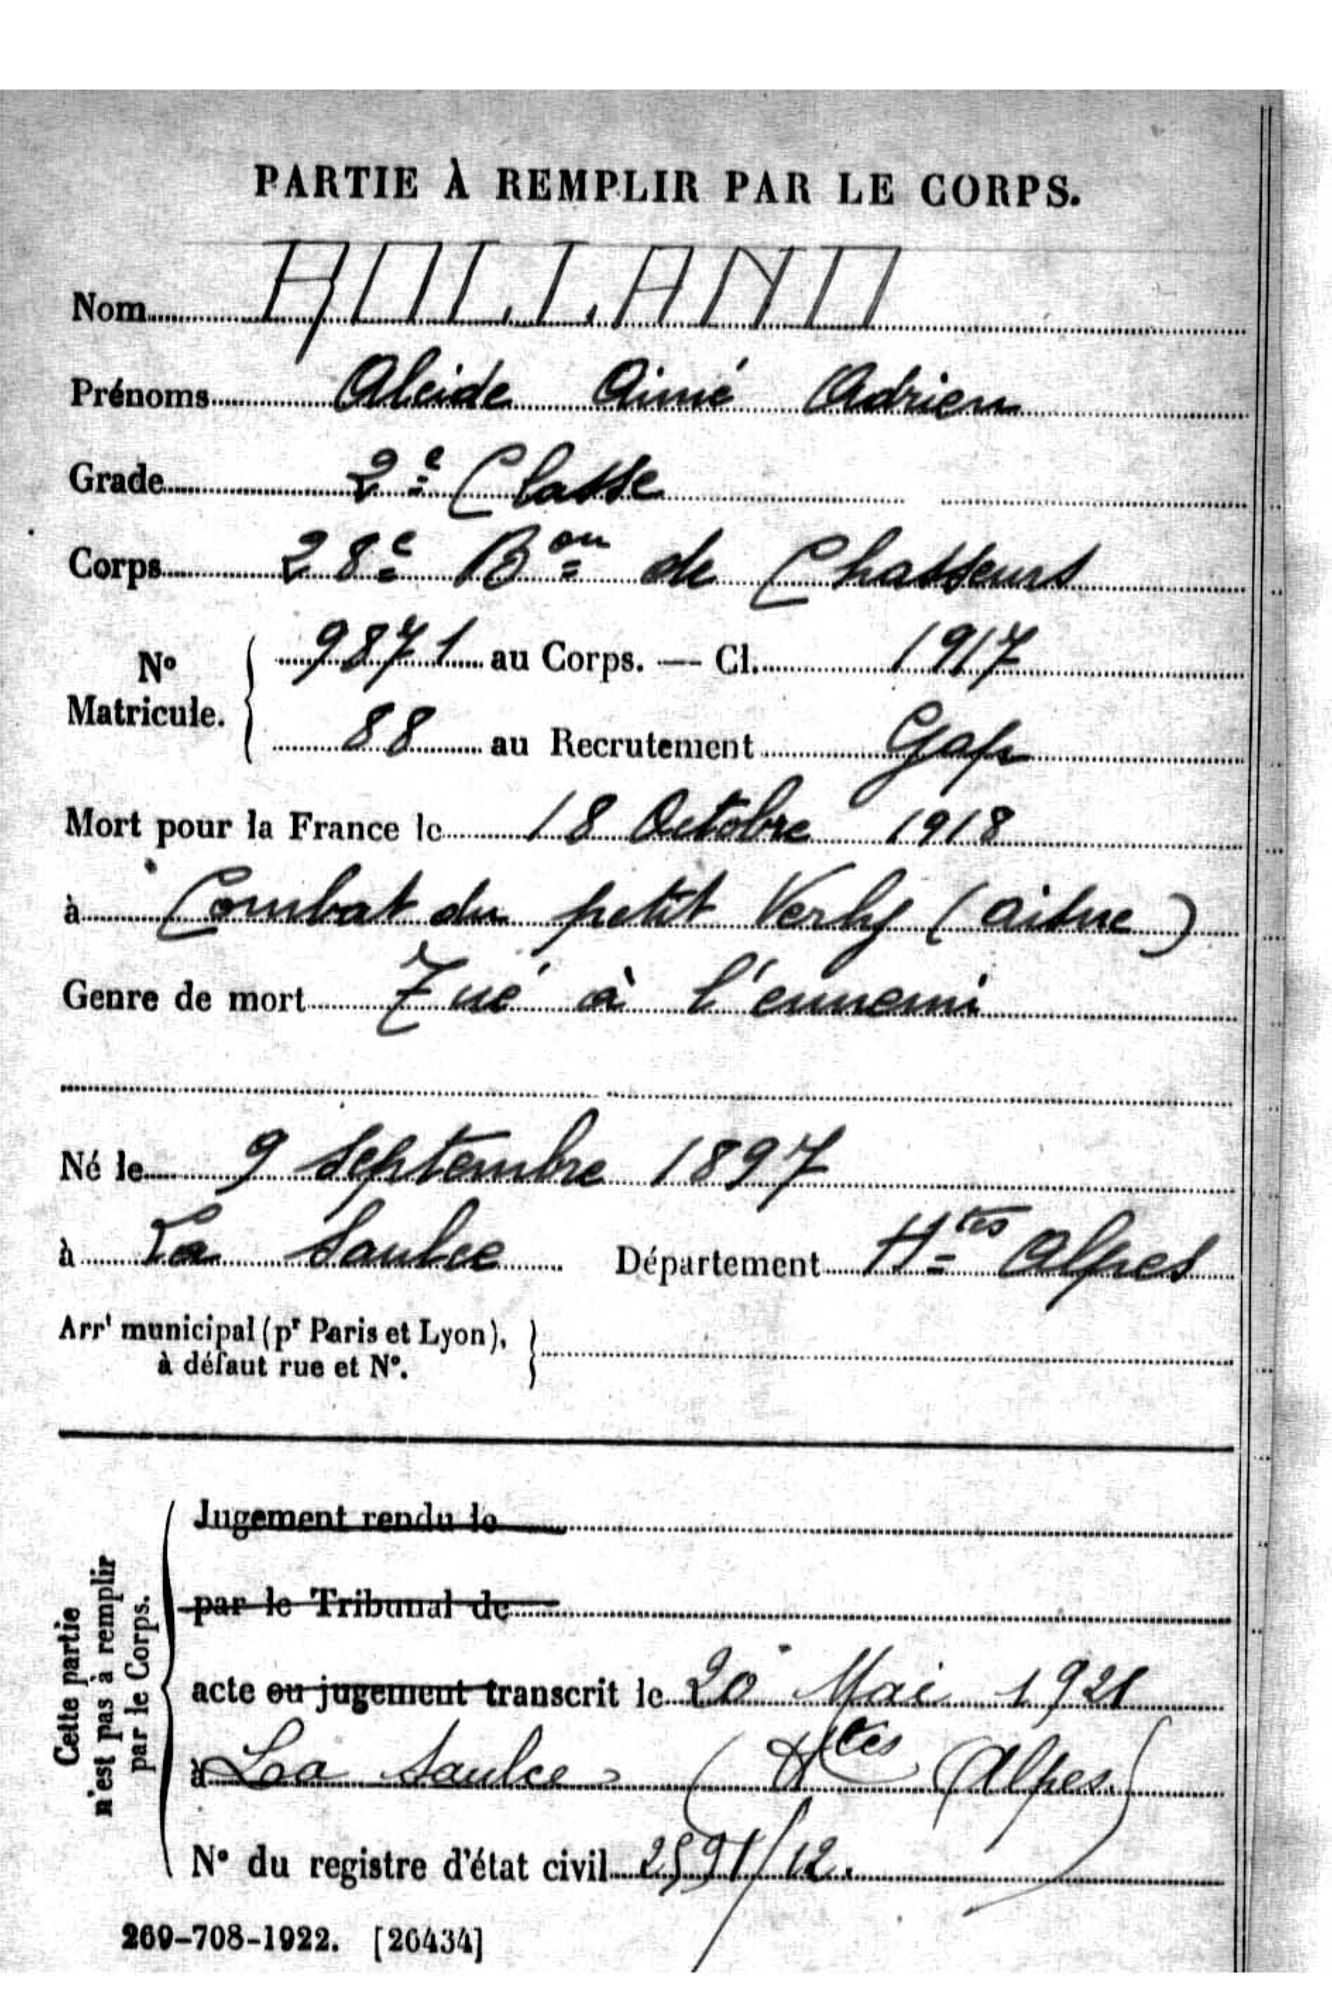 PARTIE À REMPLIR PAR LE CORPS.
Nom ROLLAND
Prénoms Alcide Aimé Adrien
Grade 2e Classe
Corps 28e Bon de Chasseurs
No Matricule. 9871 au Corps. — Cl. 1917
88 au Recrutement Gap
Mort pour la France le 18 Octobre 1918
à Combat du petit Verly (aisne)
Genre de mort Tué à l'ennemi
Né le 9 Septembre 1897
à La Saulce Département Htes Alpes
Arrt municipal (pr Paris et Lyon),
à défaut rue et No.
Cette partie
n'est pas à remplir
par le Corps.
Jugement rendu le
par le Tribunal de
acte ou jugement transcrit le 20 Mai 1921
à La Saulce (Htes Alpes)
No du registre d'état civil 2591/12.
269-708-1922. [26434]